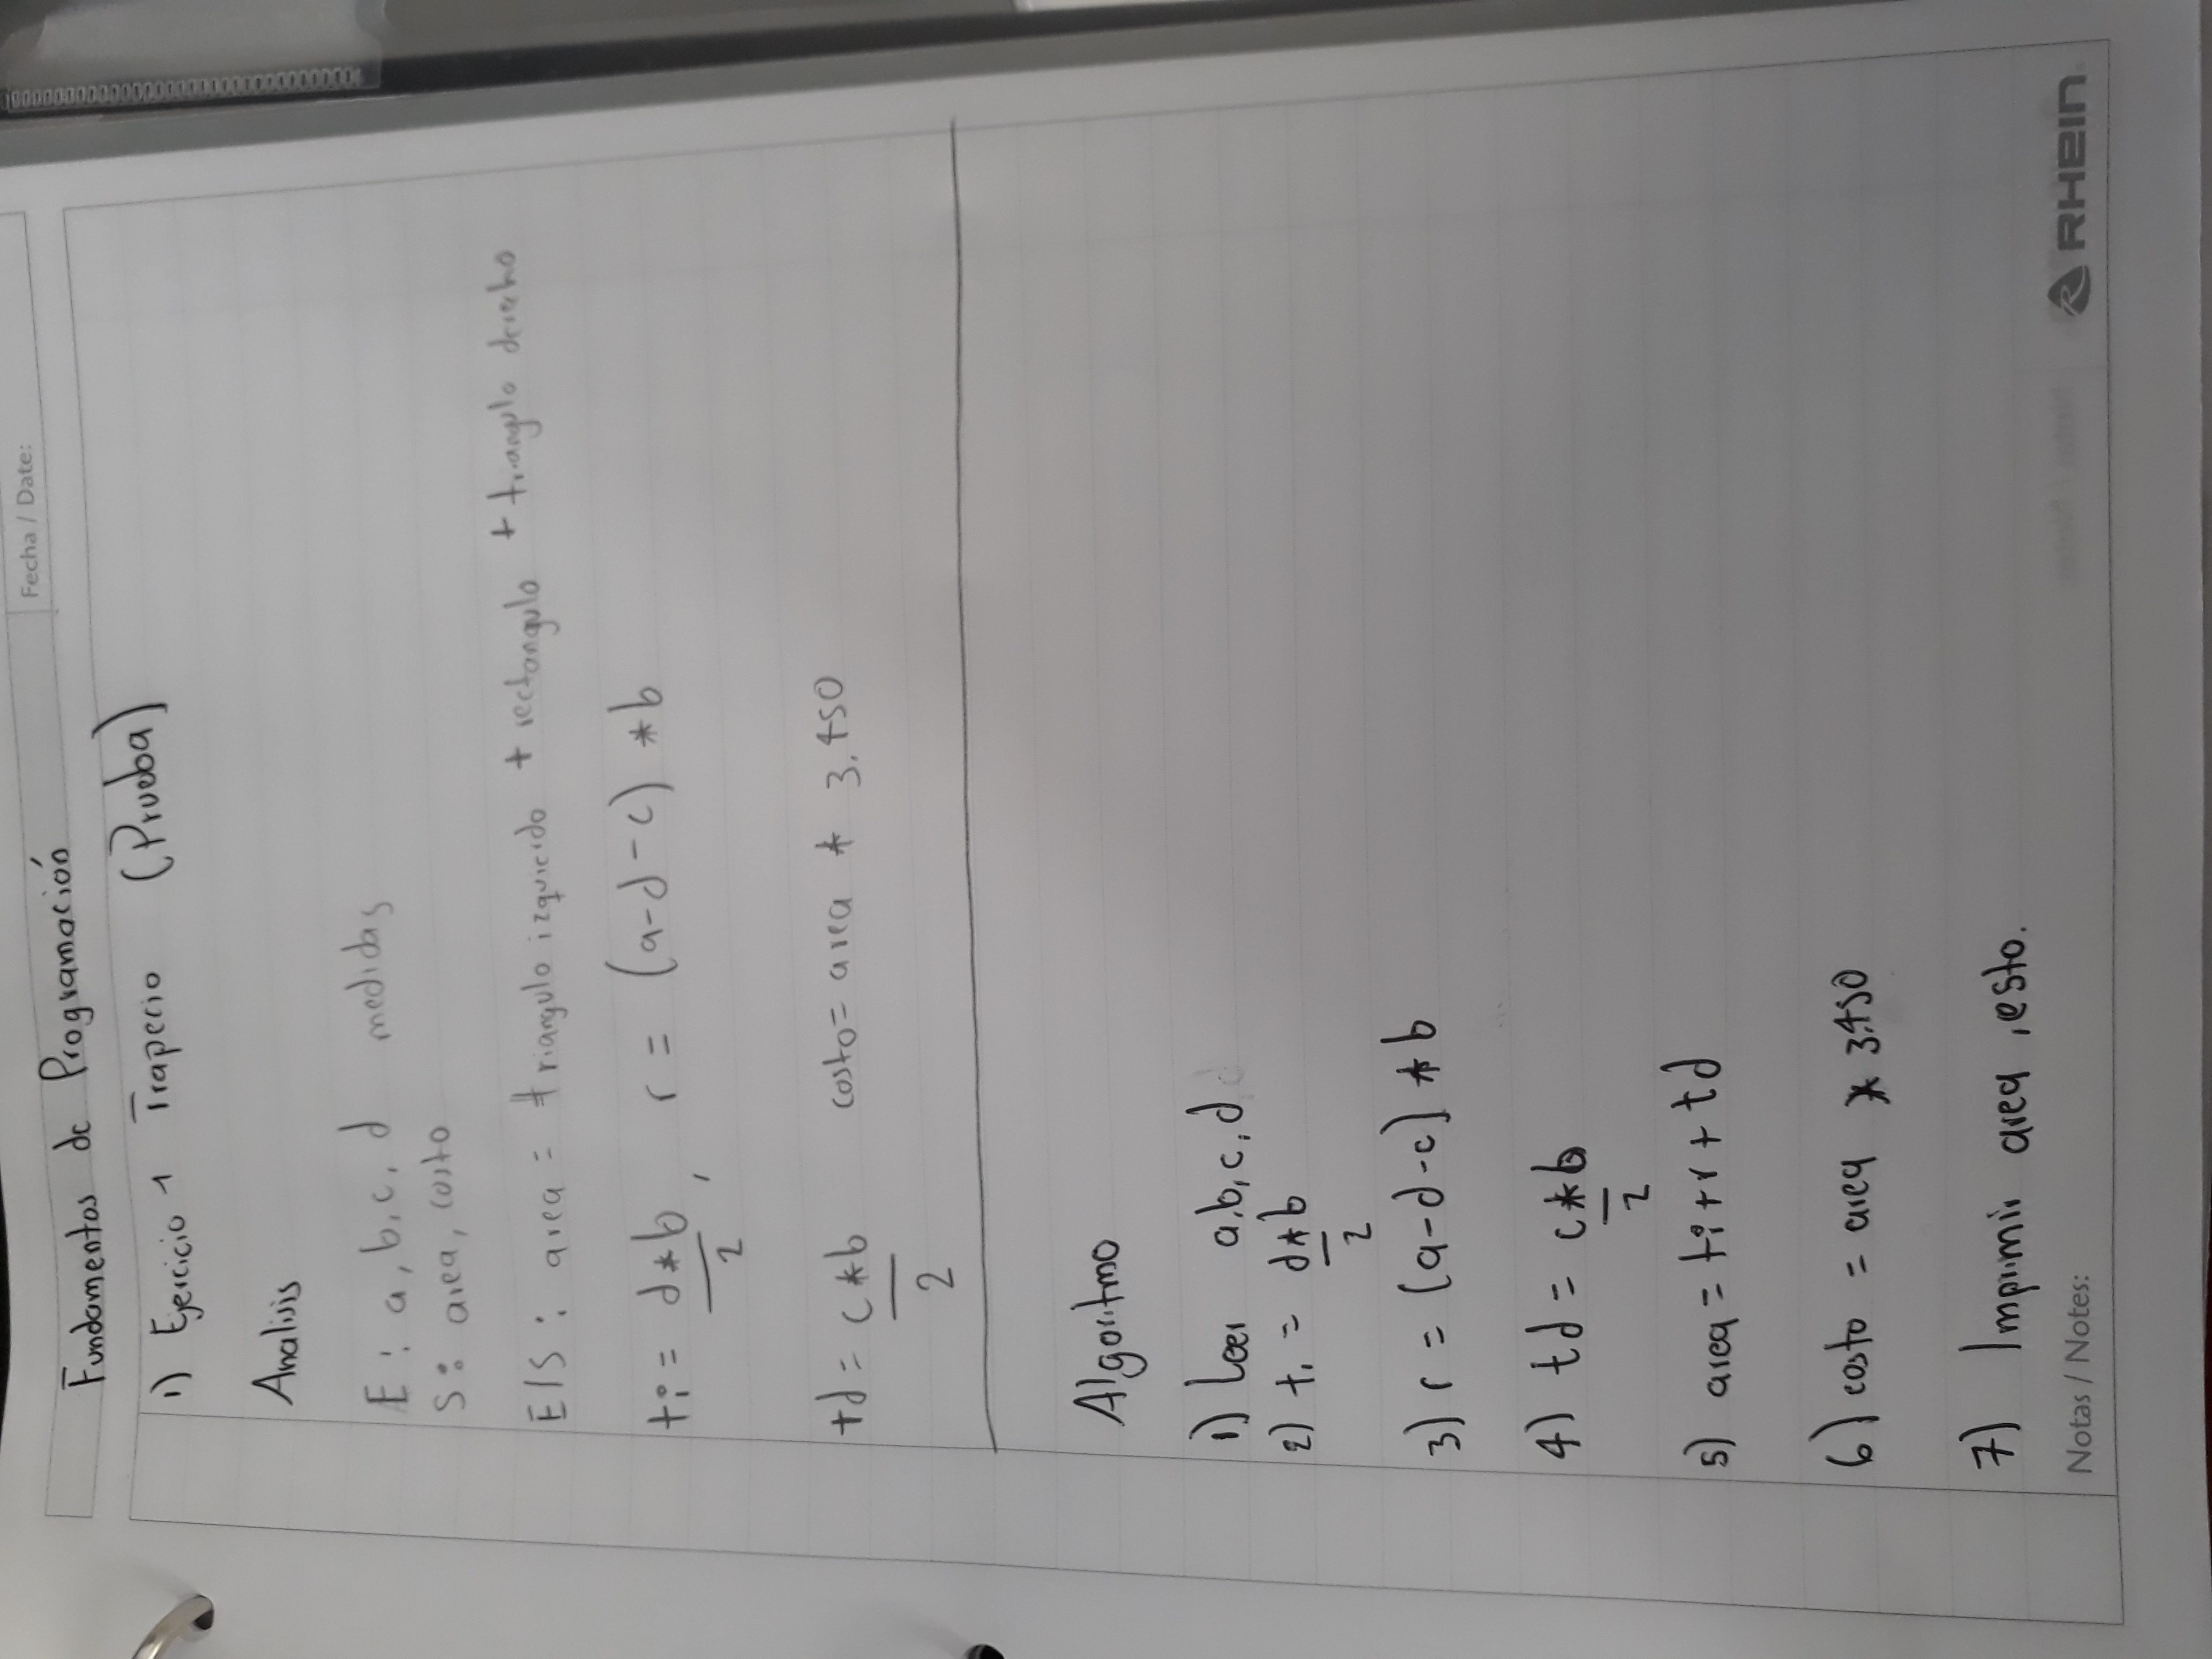 Fecha / Date:
Fundamentos de Programación
1) Ejercicio 1 Trapecio (Prueba)
Analisis
E : a, b, c, d medidas
S : area, costo
E/S : area = triangulo izquierdo + rectangulo + triangulo derecho
ti = d*b/2 , r = (a-d-c) *b
td = c*b/2 costo = area * 3.450
Algoritmo
1) Leer a, b, c, d
2) ti = d*b/2
3) r = (a-d-c) *b
4) td = c*b/2
5) area = ti + r + td
6) costo = area * 3.450
7) Imprimir area , esto.
Notas / Notes:
RHEIN